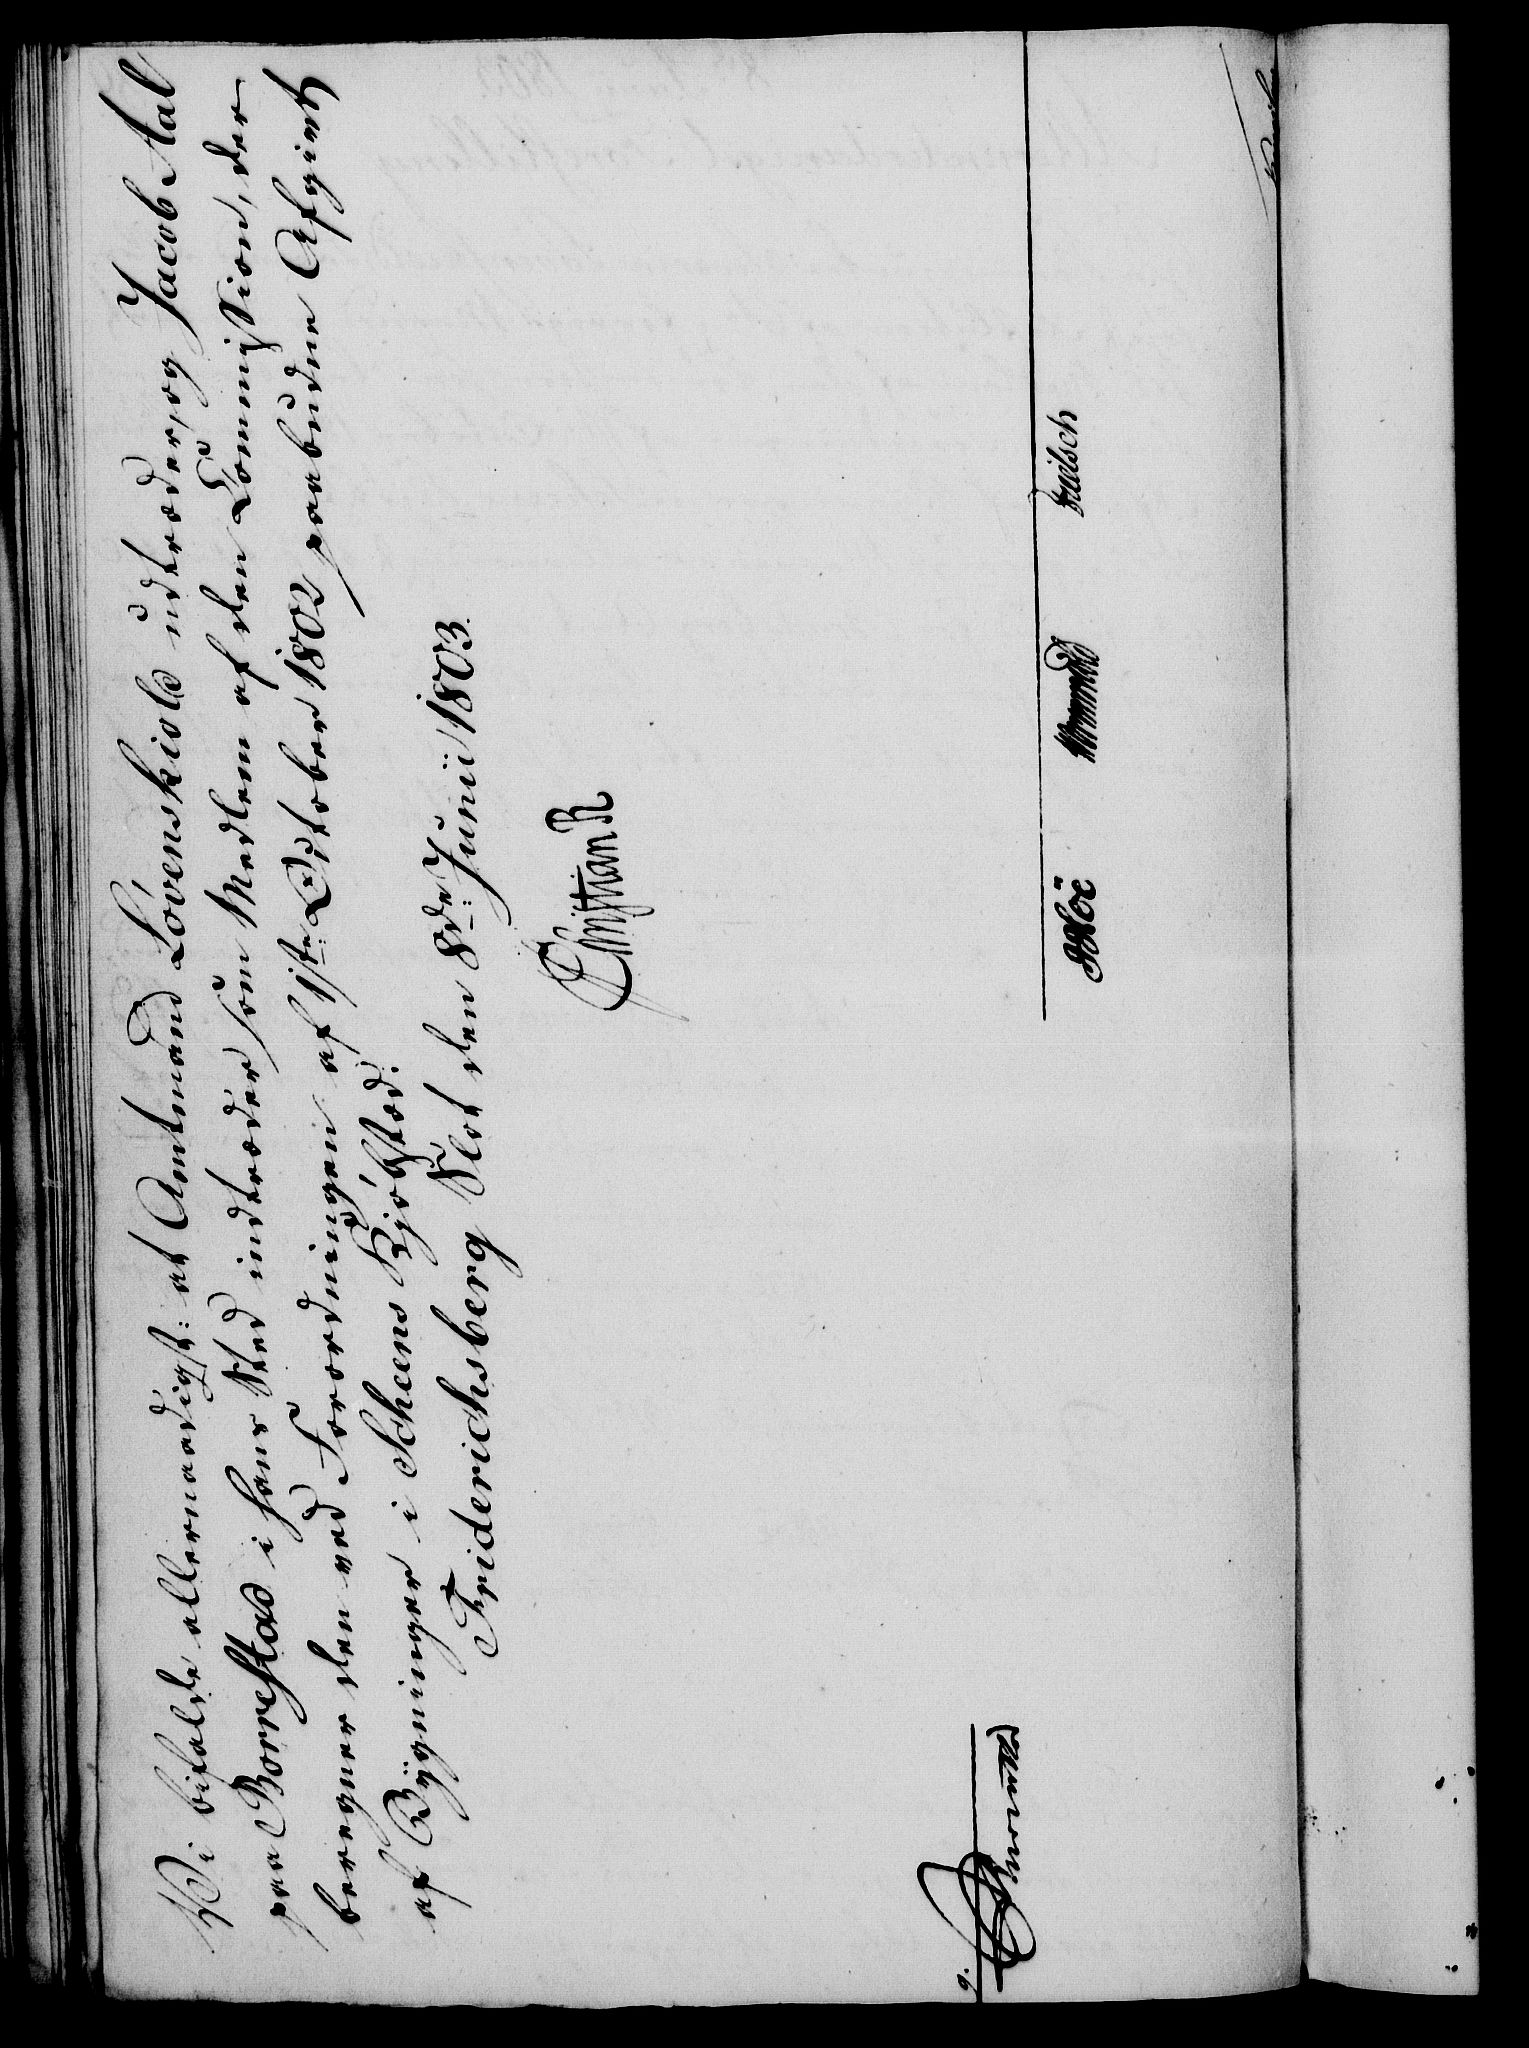 Vi bifalde allernaadigst: at Amtmand Løvenskiold udtræder, og Jacob Aal
paa Borrestad i hans Sted indtræder som Medlem af den Commission, der
beregner den ved Forordningen af 1ste October 1802 paabudne Afgivt
af Bygninger i Scheens Bjöbsted.
Friderichsberg Slot den 8de Junii 1803.
Christian R
Höe